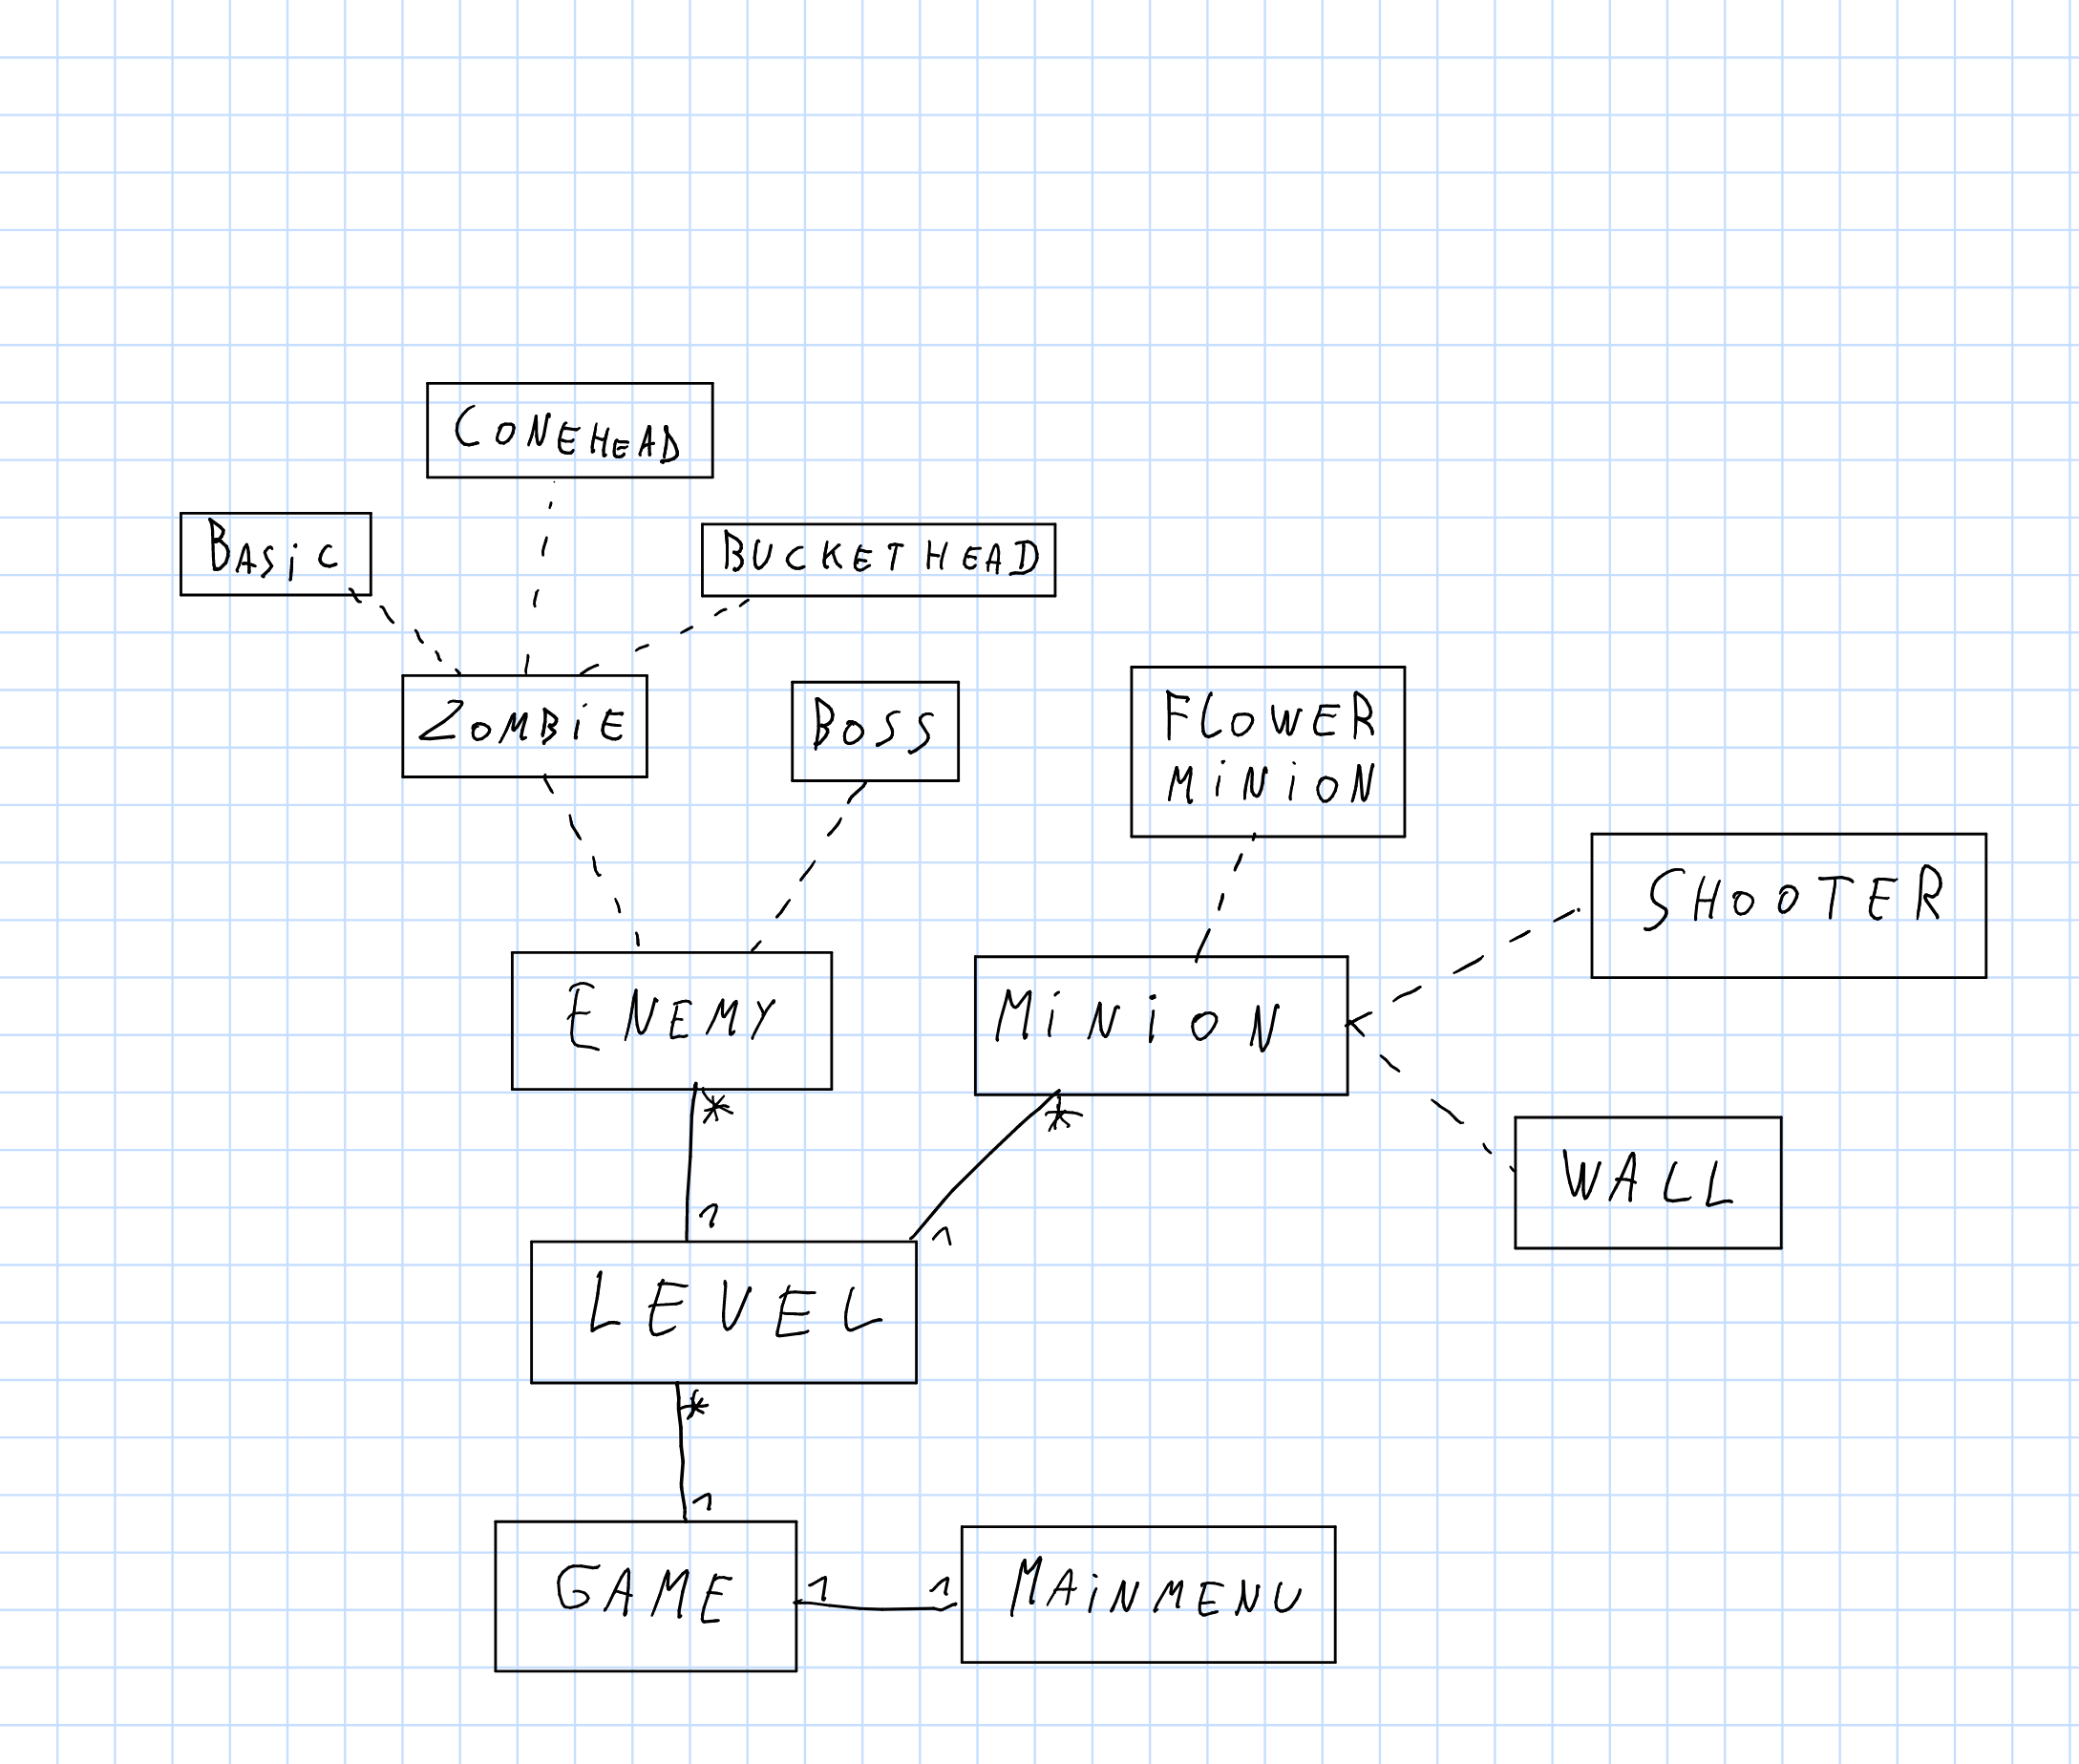 CONEHEAD
BASiC
BUCKETHEAD
ZOMBiE
BOSS
FLOWER
MiNiON
SHOOTER
ENEMY
MiNiON
*
*
WALL
1
1
LEVEL
*
1
GAME
1
1
MAiNMENU